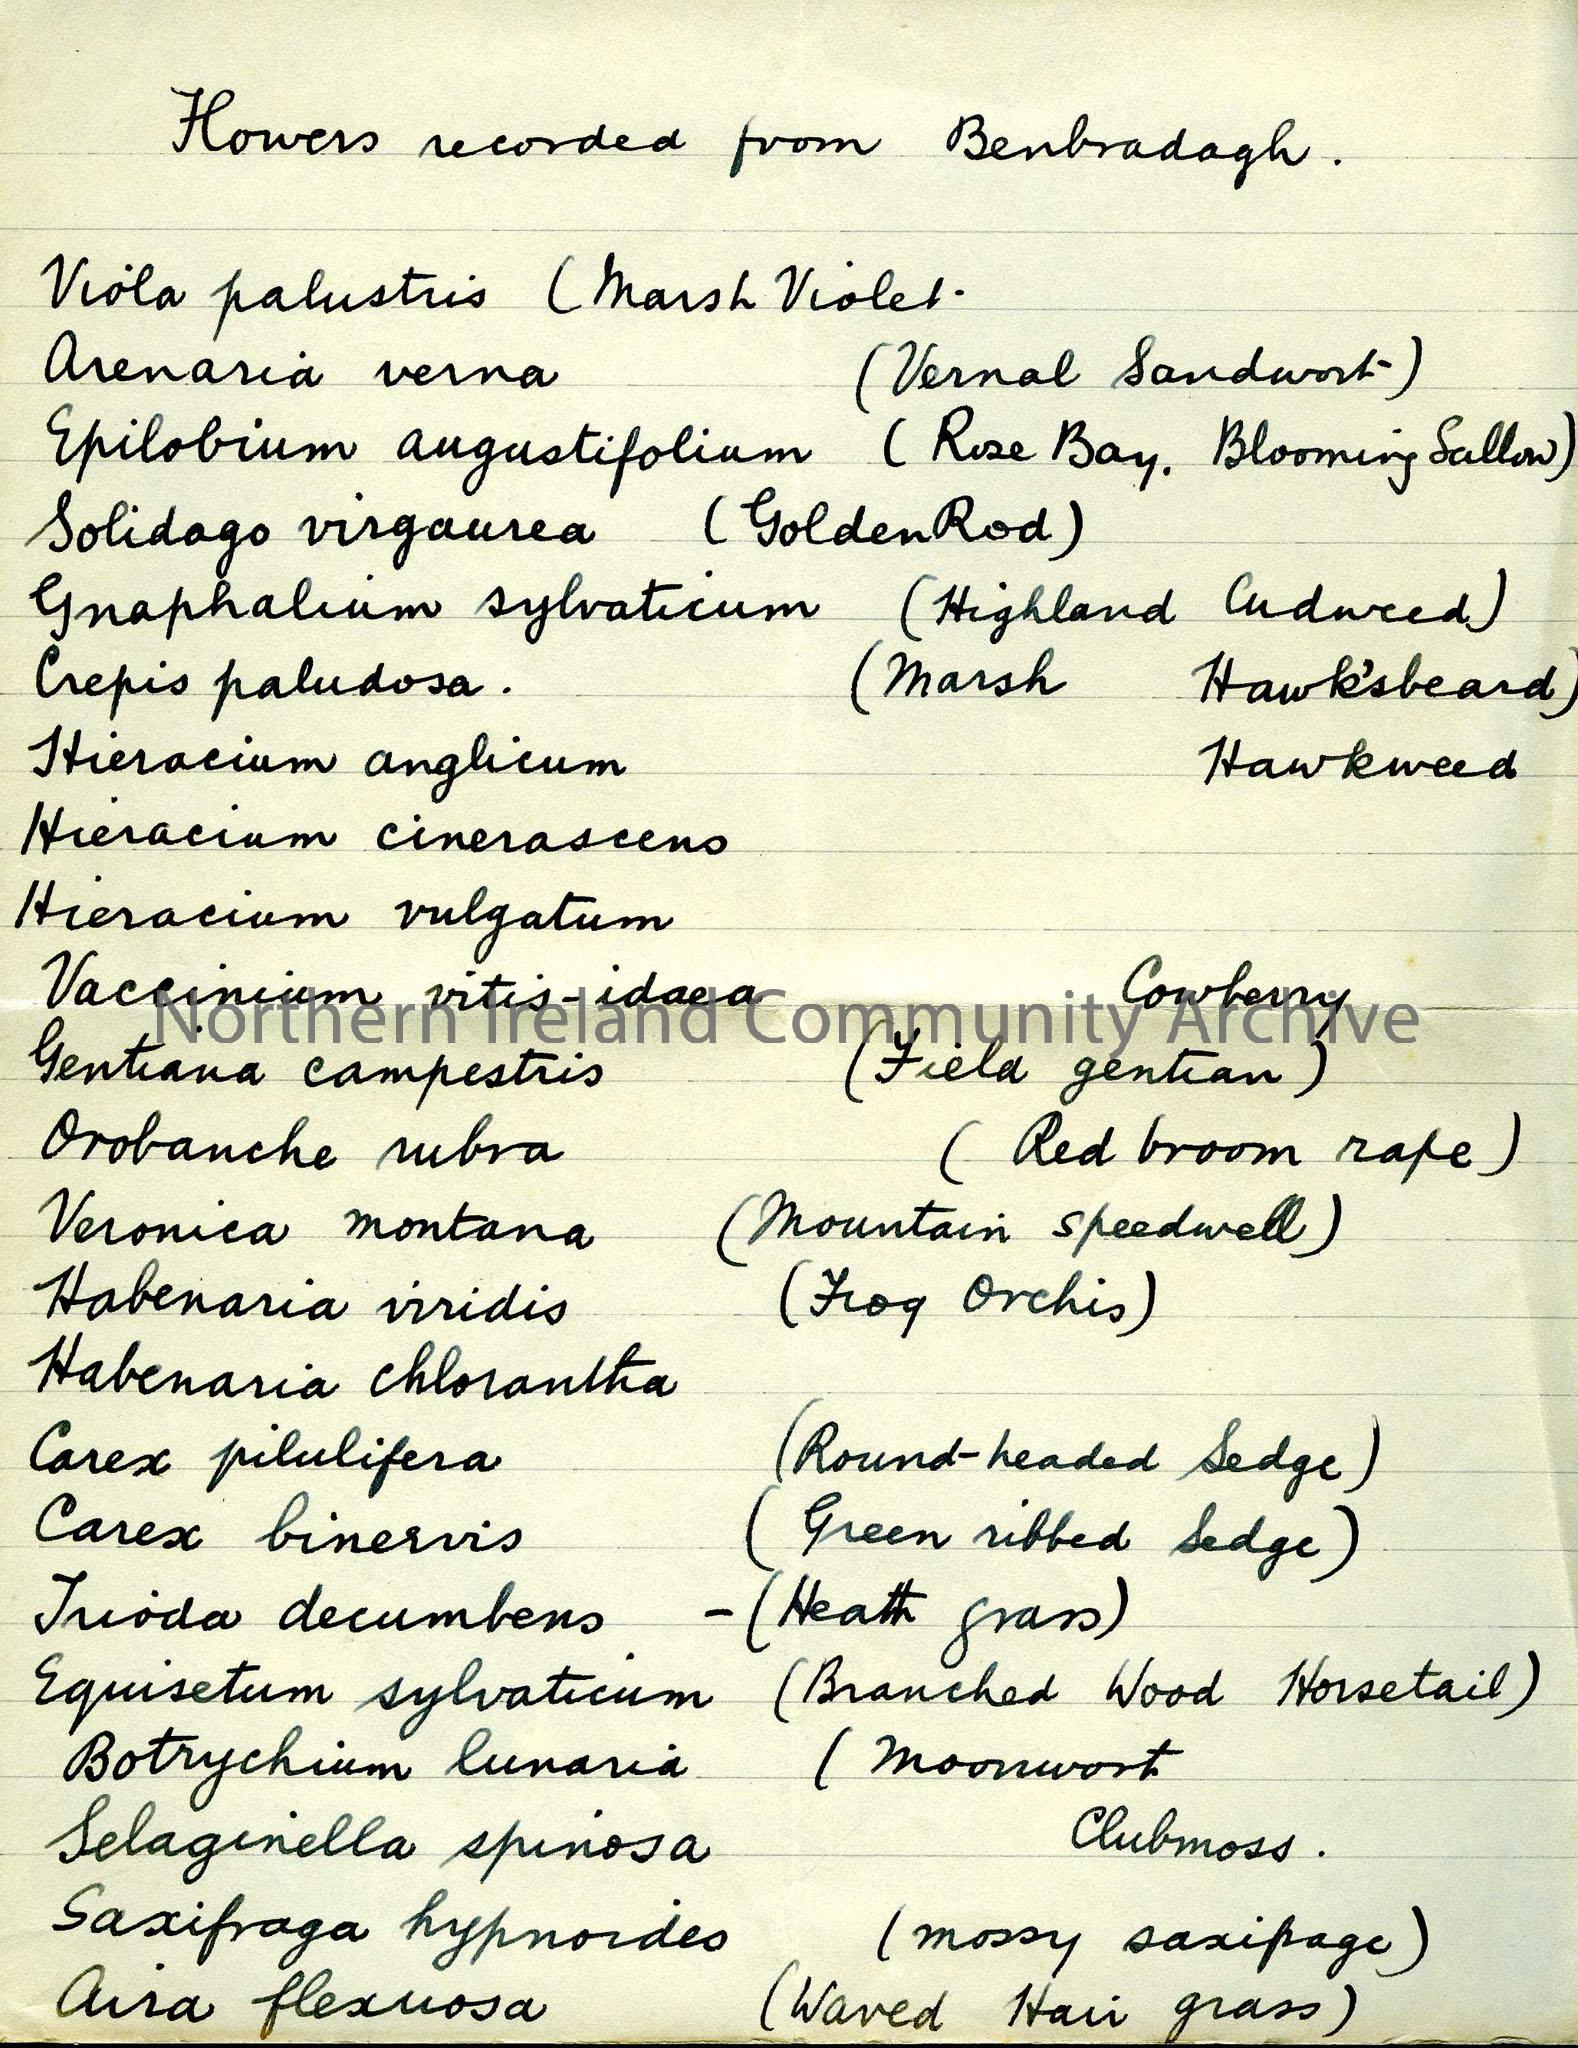 Flowers recorded from Benbradagh.
Viola palustris (Marsh Violet.
Arenaria verna (Vernal Sandwort)
Epilobium augustifolium (Rose Bay. Blooming Sallow)
Solidago virgaurea (Golden Rod)
Gnaphalium sylvaticum (Highland Cudweed)
Crepis paludosa. (Marsh Hawk'sbeard)
Hieracium anglicum Hawkweed
Hieracium cinerascens
Hieracium vulgatum
Vaccinium vitis-idaea Cowberry
Northern Ireland Community Archive
Gentiana campestris (Field gentian)
Orobanche rubra (Red broom rape)
Veronica montana (Mountain speedwell)
Habenaria viridis (Frog Orchis)
Habenaria chlorantha
Carex pilulifera (Round-headed Sedge)
Carex binervis (Green ribbed Sedge)
Trioda decumbens -(Heath grass)
Equisetum sylvaticum (Branched Wood Horsetail)
Botrychium lunaria (Moonwort
Selaginella spinosa Clubmoss.
Saxifraga hypnoides (mossy saxifrage)
Aira flexuosa (Waved Hair grass)